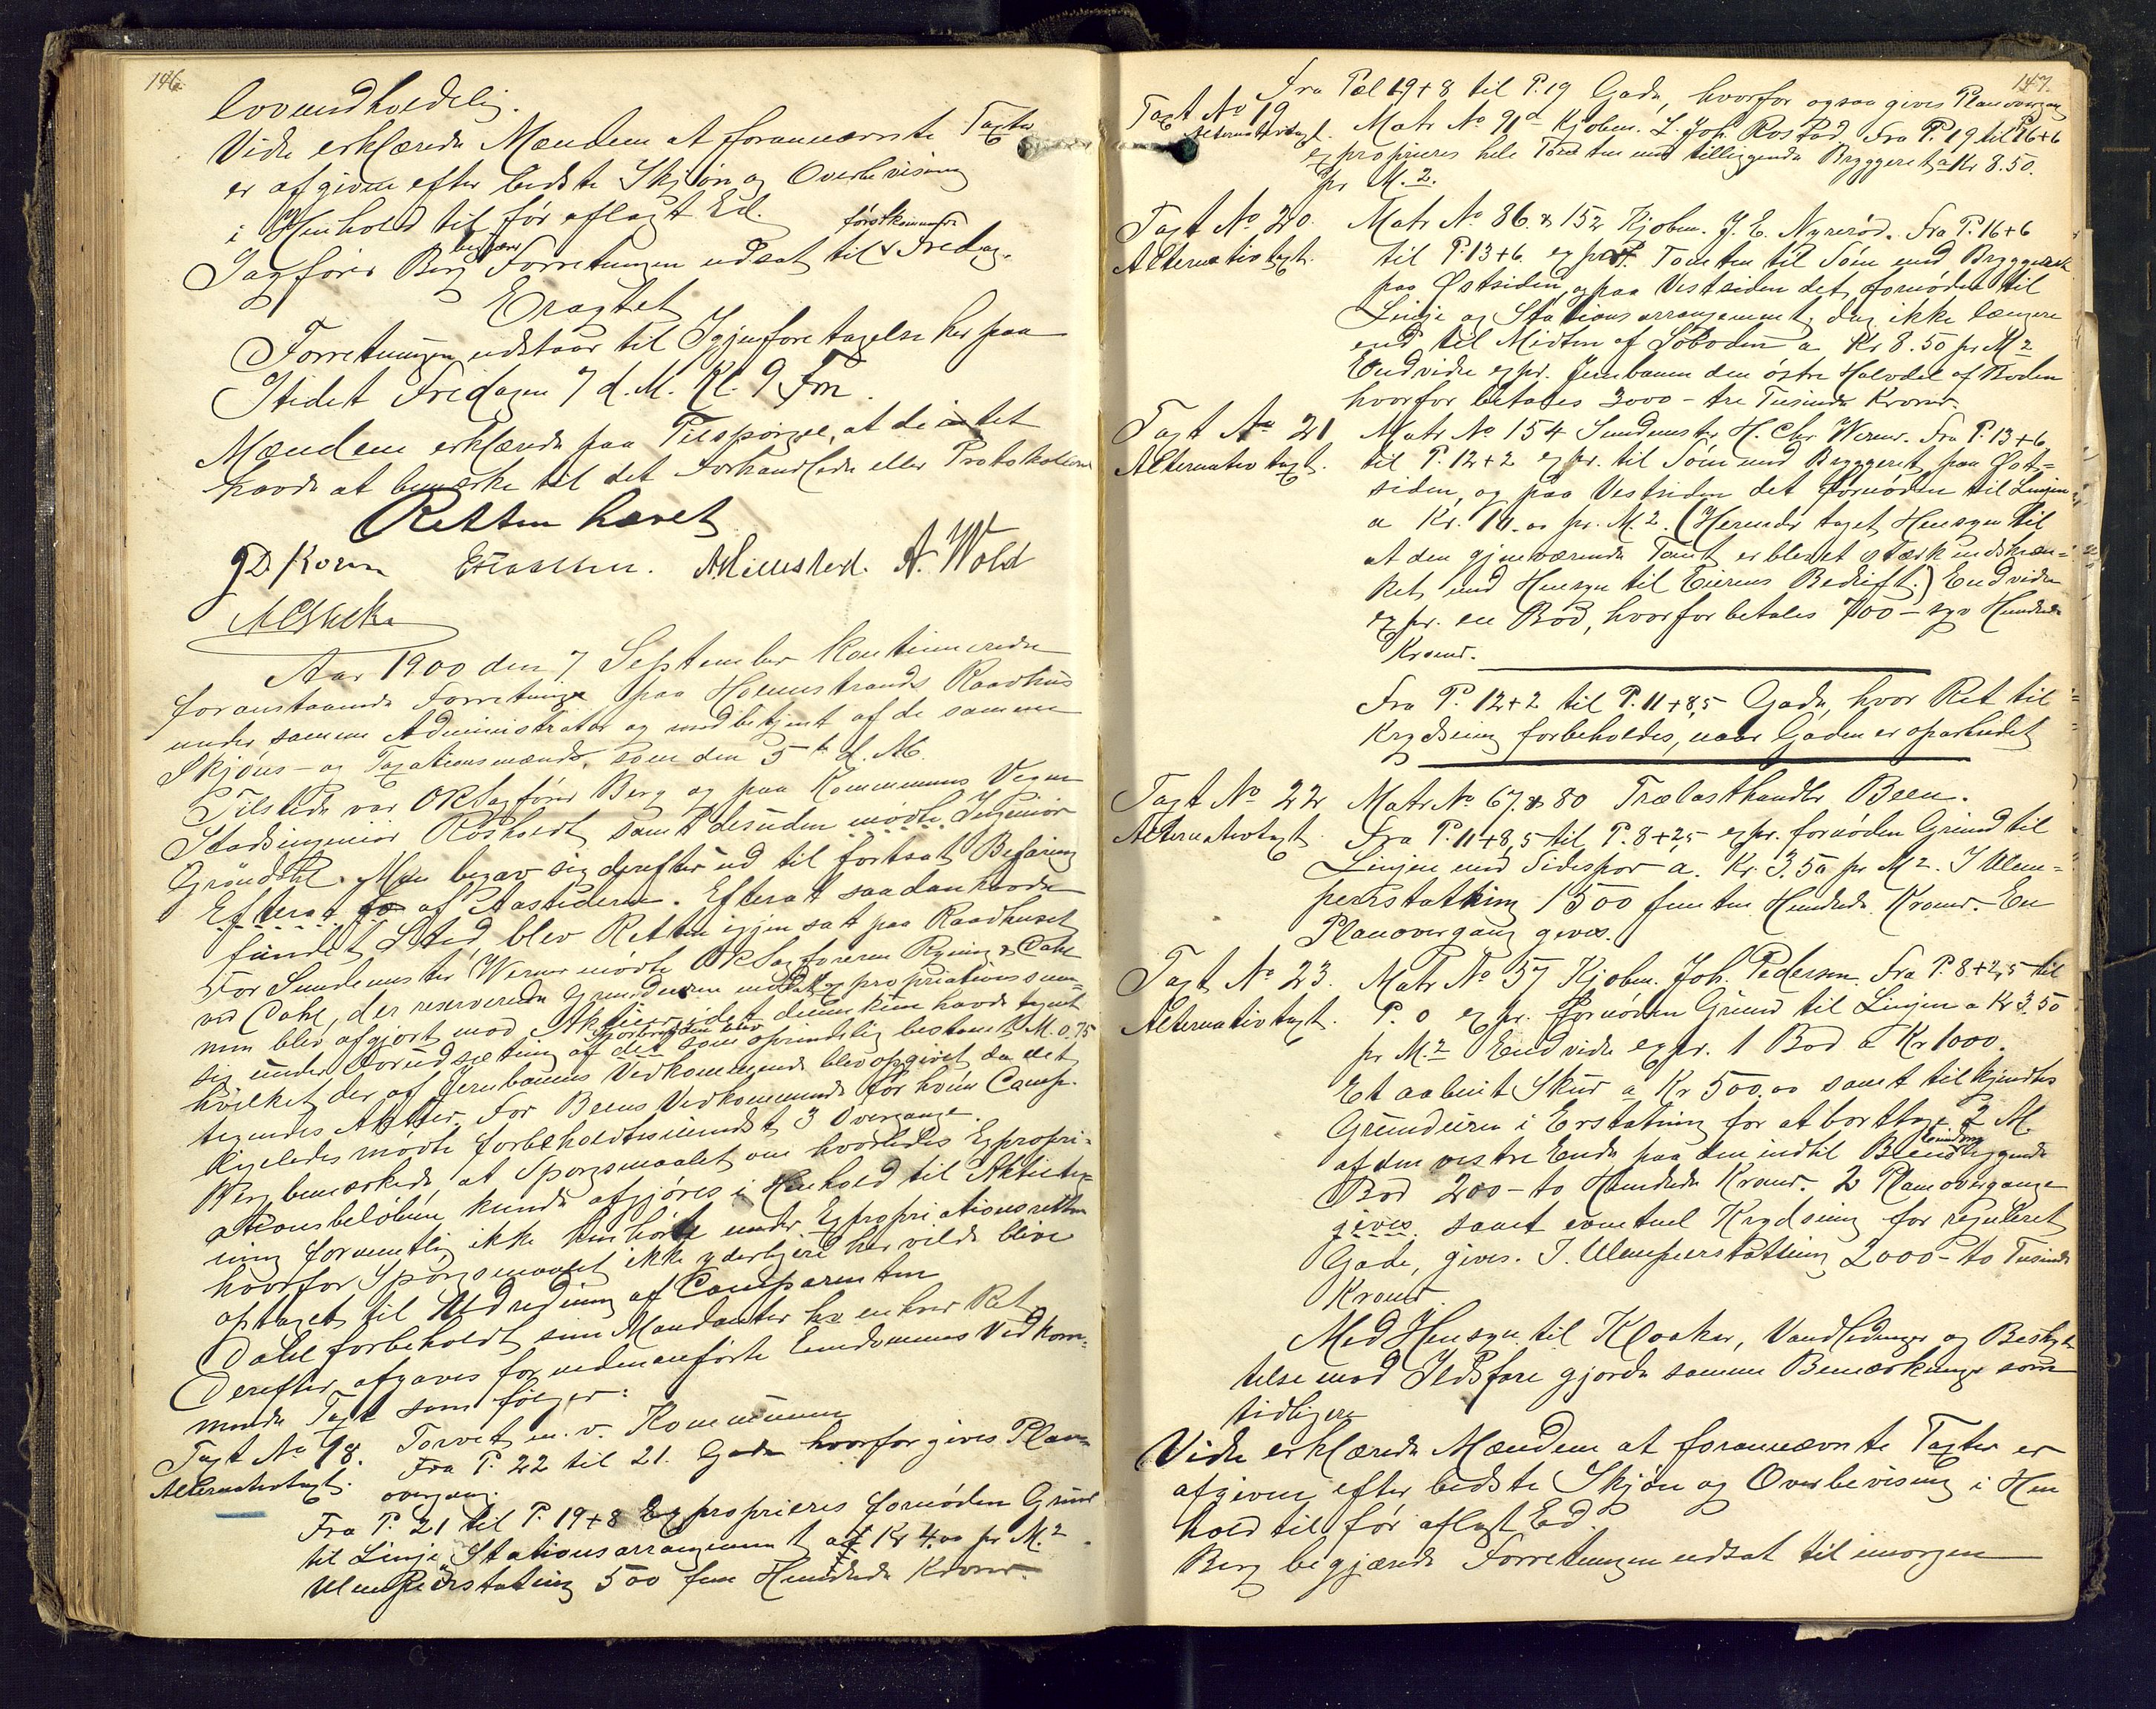 146.
lovmedholdelig.
Vidre erklærede Mændene at forannævnte Taxter
er afgivne efter bedste Skjøn og Overbevisning
i Henhold til før aflagt Ed.
Sagfører Berg begjærer Forretningen udsat til førstkommende Fredag.
Eragtet
Forretningen udstaar til Igjenforetagelse her paa
Stedet Fredagen 7 d. M. Kl. 9 Fm.
Mændene erklærede paa Tilspørgsel, at de intet
havde at bemærke til det Forhandlede eller Protokollerede
Retten hævet
A. Wold
Aar 1900 den 7 September kontinueredes
foranstaaende Forretning paa Holmestrands Raadhus
under samme Administrator og medbetjent af de samme
Skjøns- og Taxationsmænd, som den 5te d. M.
Tilstede var ORSagfører Berg og paa Kommunens Vegne
Stadsingeniør Rosholdt samt desuden mødte Ingeniør
Grøndahl. Man begav sig derefter ud til fortsat Befaring
Efterat fo af Aastederne. Efterat saadan havde
fundet Sted, blev Retten igjen sat paa Raadhuset
For Sundemester Werner mødte ORSagførerne Ryning & Dahl
ved Dahl, der reserverede Grundeieren mod at Expropriationssum-
men blev afgjort mod Aktier, idet denne kun havde tegnet
sig under Forudsætning af det Sporbredden blev som oprindelig bestemt M. 0.75
hvilket der af Jernbanens Vedkommende blev opgivet da det
tegnedes Aktier. For Beens Vedkommende for hvem Comp.
ligeledes mødte forbeholdtes mindst 3 Overgange.
Berg bemærkede, at Spørgsmaalet om hvorledes Expropri-
ationsbeløbene kunde afgjøres i Henhold til Aktieteg-
ning formentlig ikke henhørte under Expropriationsretten
hvorfor Spørgsmaalet ikke yderligere her vilde blive
optaget til Udredning af Comparenten
Dahl forbeholdt sine Mandanter hv enhver Ret
Derefter afgaves for nedenanførte Eiendommes Vedkom-
mende Taxt som følger:
Taxt No 18. Torvet m. v. Kommunen
Alternativtaxt. Fra P. 22 til 21. Gade hvorfor gives Plan-
overgang.
Fra P. 21 til P. 19+8 Exproprieres fornøden Grund
til Linje, Stationsarrangement af Kr 4.00 pr M.2
Ulempeerstatning 500 fem Hundrede Kroner.
147.
Fra Pæl 19+8 til P. 19 Gade, hvorfor ogsaa gives Planovergang
Taxt No 19 Matr No 91d Kjøbm. L. Joh. Rostad. Fra P. 19 til P16+6
Alternativtaxt. exproprieres hele Tomten med tilliggende Bryggeret a Kr 8.50.
pr M.2.
Taxt No 20. Matr No 86. & 152 Kjøbm. J. E. Nyrerød. Fra P. 16+6
Alternativtaxt. til P. 13+6. expr. Tomten til Søen med Bryggeret
paa Østsiden, og paa Vestsiden det fornødne til
Linje og Stationsarrangement, dog ikke længere
end til Midten af Søboden a Kr 8.50 pr M2
Endvidre expr. Jernbanen den østre Halvdel af Boden
hvorfor betales 3000 - tre Tusinde Kroner.
Taxt No 21 Matr No 154 Sundemester H. Chr. Werner. Fra P. 13+6
Alternativtaxt. til P. 12+2 expr. til Søen med Bryggeret paa Øst-
siden, og paa Vestsiden det fornødne til Linjen
a Kr. 10.00 pr. M.2. (Herunder taget Hensyn til
at den gjenværende Tomt er blevet stærk indskræn-
ket med Hensyn til Eierens Bedrift.) Endvidre
expr. en Bod, hvorfor betales 700 - syv Hundrede
Kroner.
Fra P. 12+2 til P. 11+8,5 Gade, hvor Ret til
Krydsning forbeholdes, naar Gaden er oparbeidet
Taxt No 22 Matr No 67. & 80 Trælasthandler Been.
Alternativtaxt. Fra P. 11+8,5 til P. 8+2,5 expr. fornøden Grund til
Linjen med Sidespor a. Kr. 3.50 pr M2. I Ulem-
peerstatning 1500 femten Hundrede Kroner. En
Planovergang gives.
Taxt No 23. Matr No 57 Kjøbm. Joh. Pedersen. Fra P. 8+2,5 til
Alternativtaxt. P. 0 expr. fornøden Grund til Linjen a Kr 3.50
pr M.2 Endvidre expr. 1 Bod a Kr 1000.
Et aabent Skur a Kr 500.00 samt tilkjendtes
Grundeieren i Erstatning for at borttage 2 M.
af den vestre Ende paa den indtil Beens Eiendom liggende
Bod 200 - to Hundrede Kroner. 2 Planovergange
gives. samt eventuel Krydsning for reguleret
Gade, gives. I Ulempeerstatning 2000 - to Tusinde
Kroner.
Med Hensyn til Kloaker, Vandledninger og Beskyt-
telse mod Ildsfare gjordes samme Bemærkninger som
tidligere
Vidre erklærede Mændene at forannævnte Taxter er
afgivne efter bedste Skjøn og Overbevisning i Hen
hold til før aflagt Ed.
Berg begjærede Forretningen udsat til imorgen